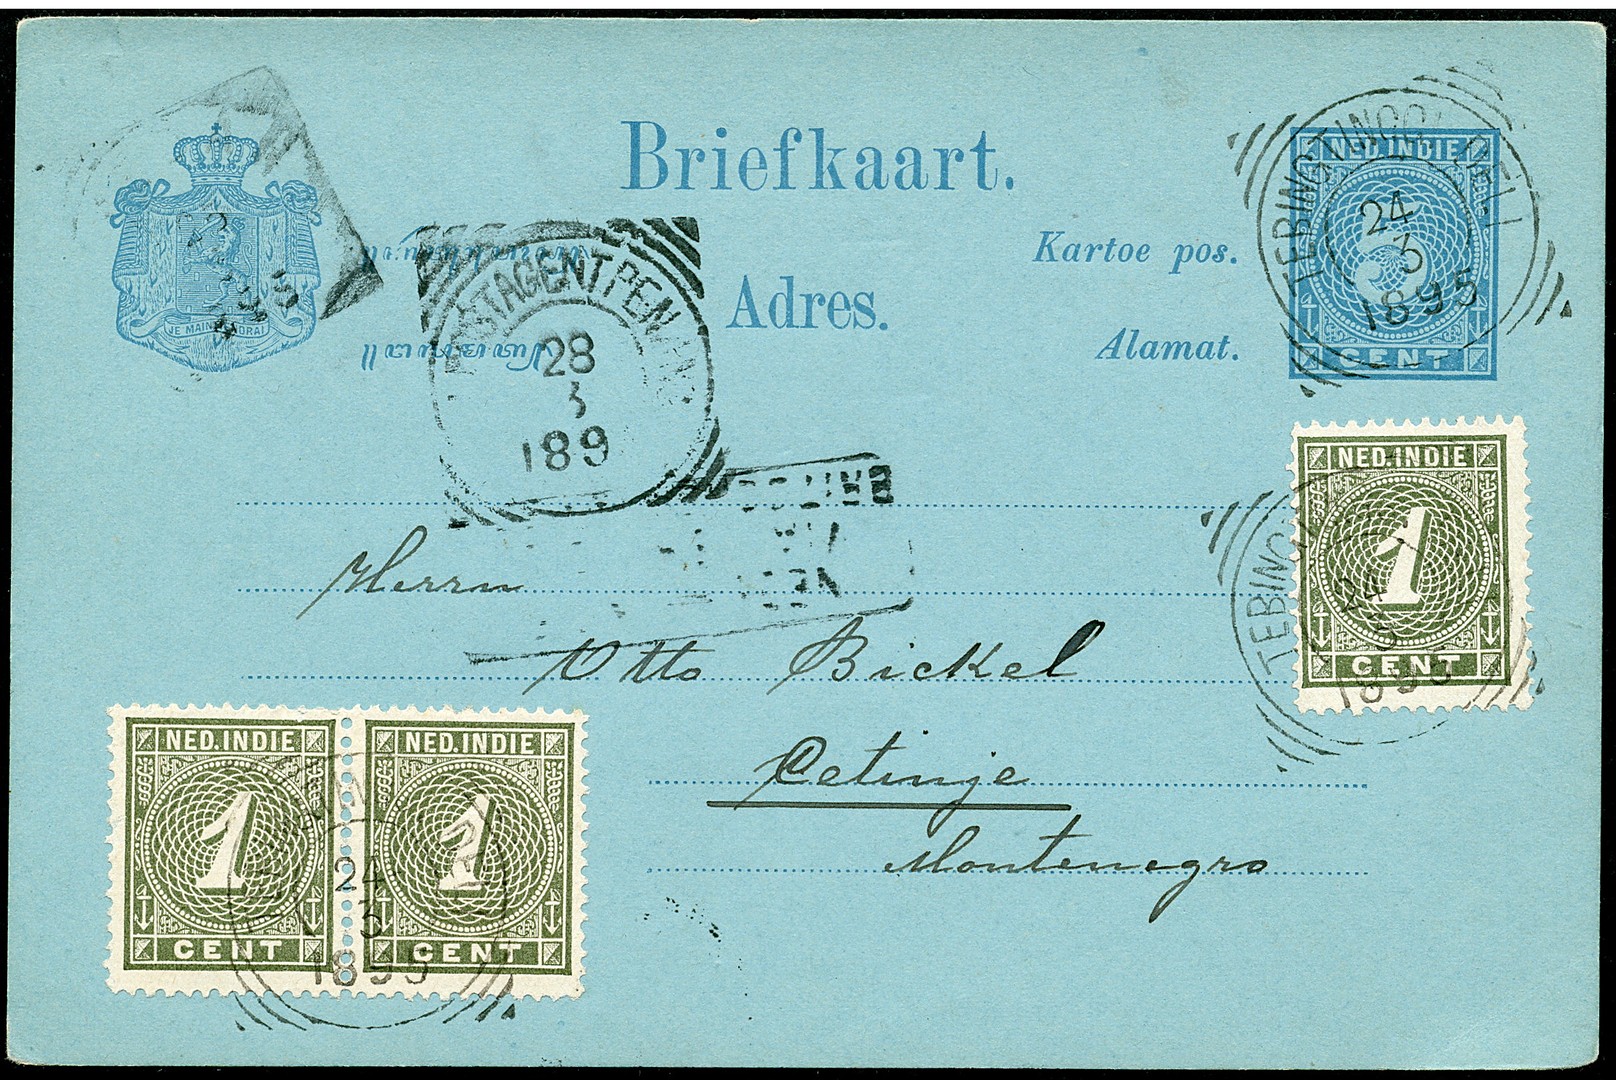 Briefkaart.
Kartoe pos.
Adres.
Alamat.
JE MAINTIENDRAI
NED. INDIE
5
CENT
TEBINGTINGGI DELI
24
3
1895
POSTAGENT PENANG
28
3
189
Herrn
Otto Bickel
Cetinje
Montenegro
NED. INDIE
1
CENT
TEBING
24
3
1895
NED. INDIE
1
CENT
NED. INDIE
1
CENT
24
3
1895